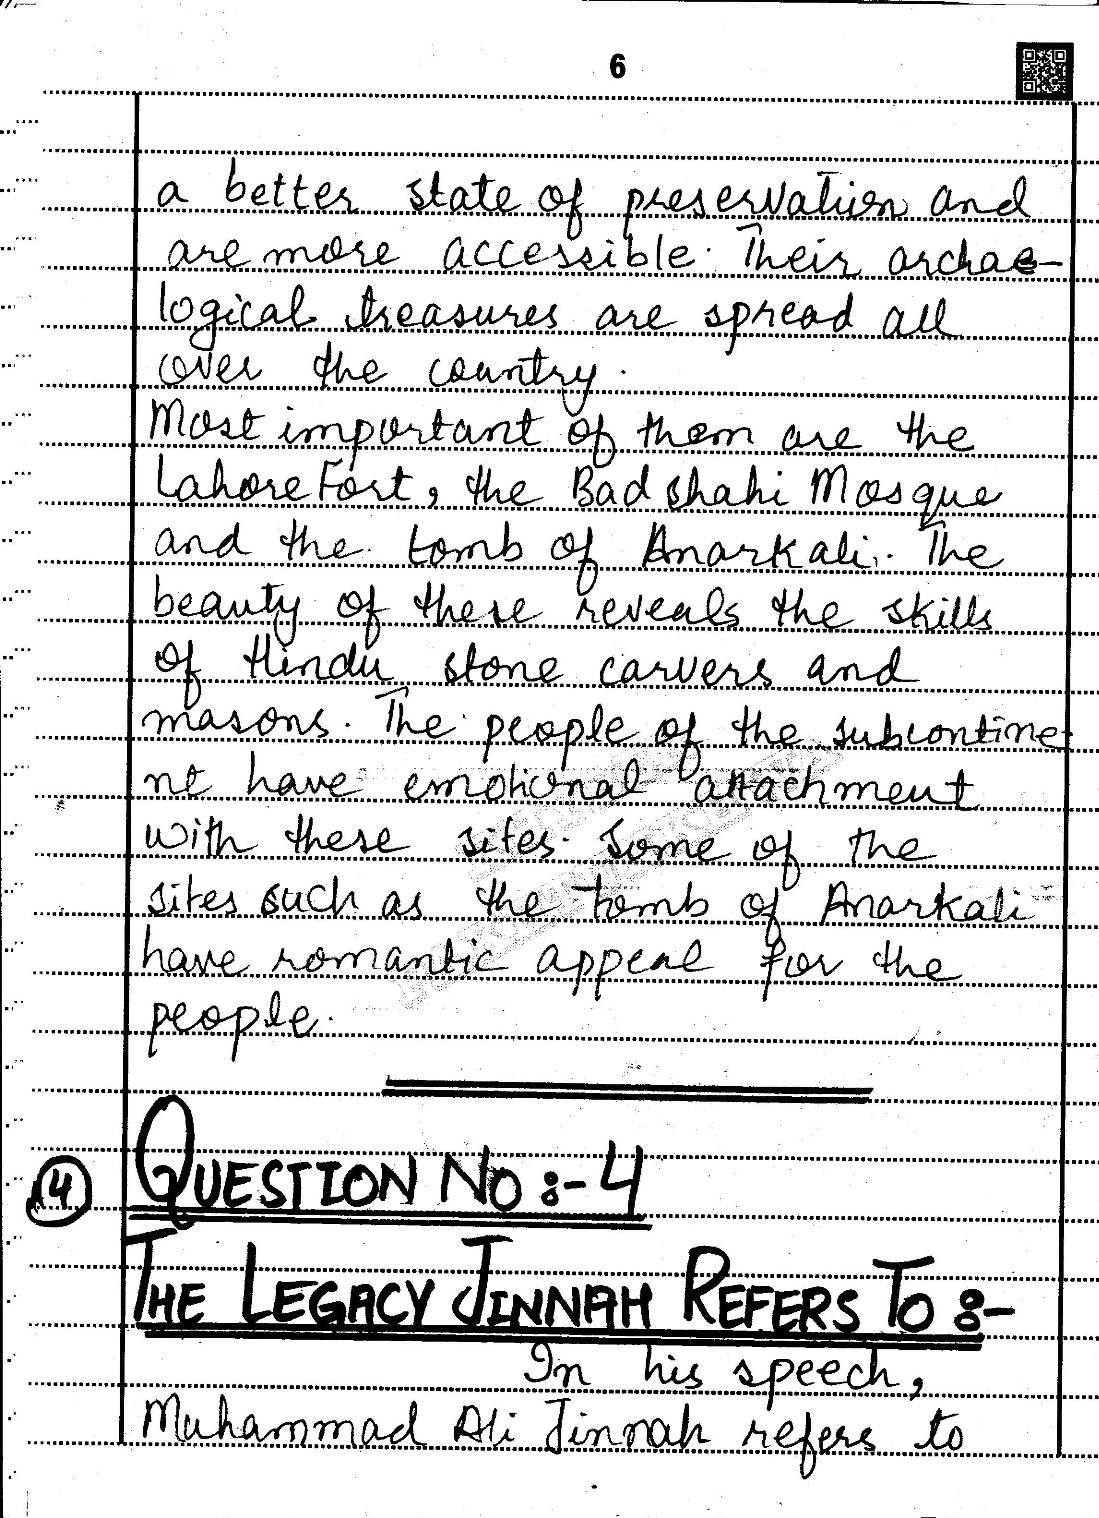 6
a better state of preservation and
are more accessible. Their archae-
logical treasures are spread all
over the country.
Most important of them are the
Lahore Fort, the Badshahi Mosque
and the tomb of Anarkali. The
beauty of these reveals the skills
of Hindu stone carvers and
masons. The people of the subcontine-
nt have emotional attachment
with these sites. Some of the
sites such as the tomb of Anarkali
have romantic appeal for the
people.
4
QUESTION NO:-4
THE LEGACY JINNAH REFERS TO :-
In his speech,
Muhammad Ali Jinnah refers to